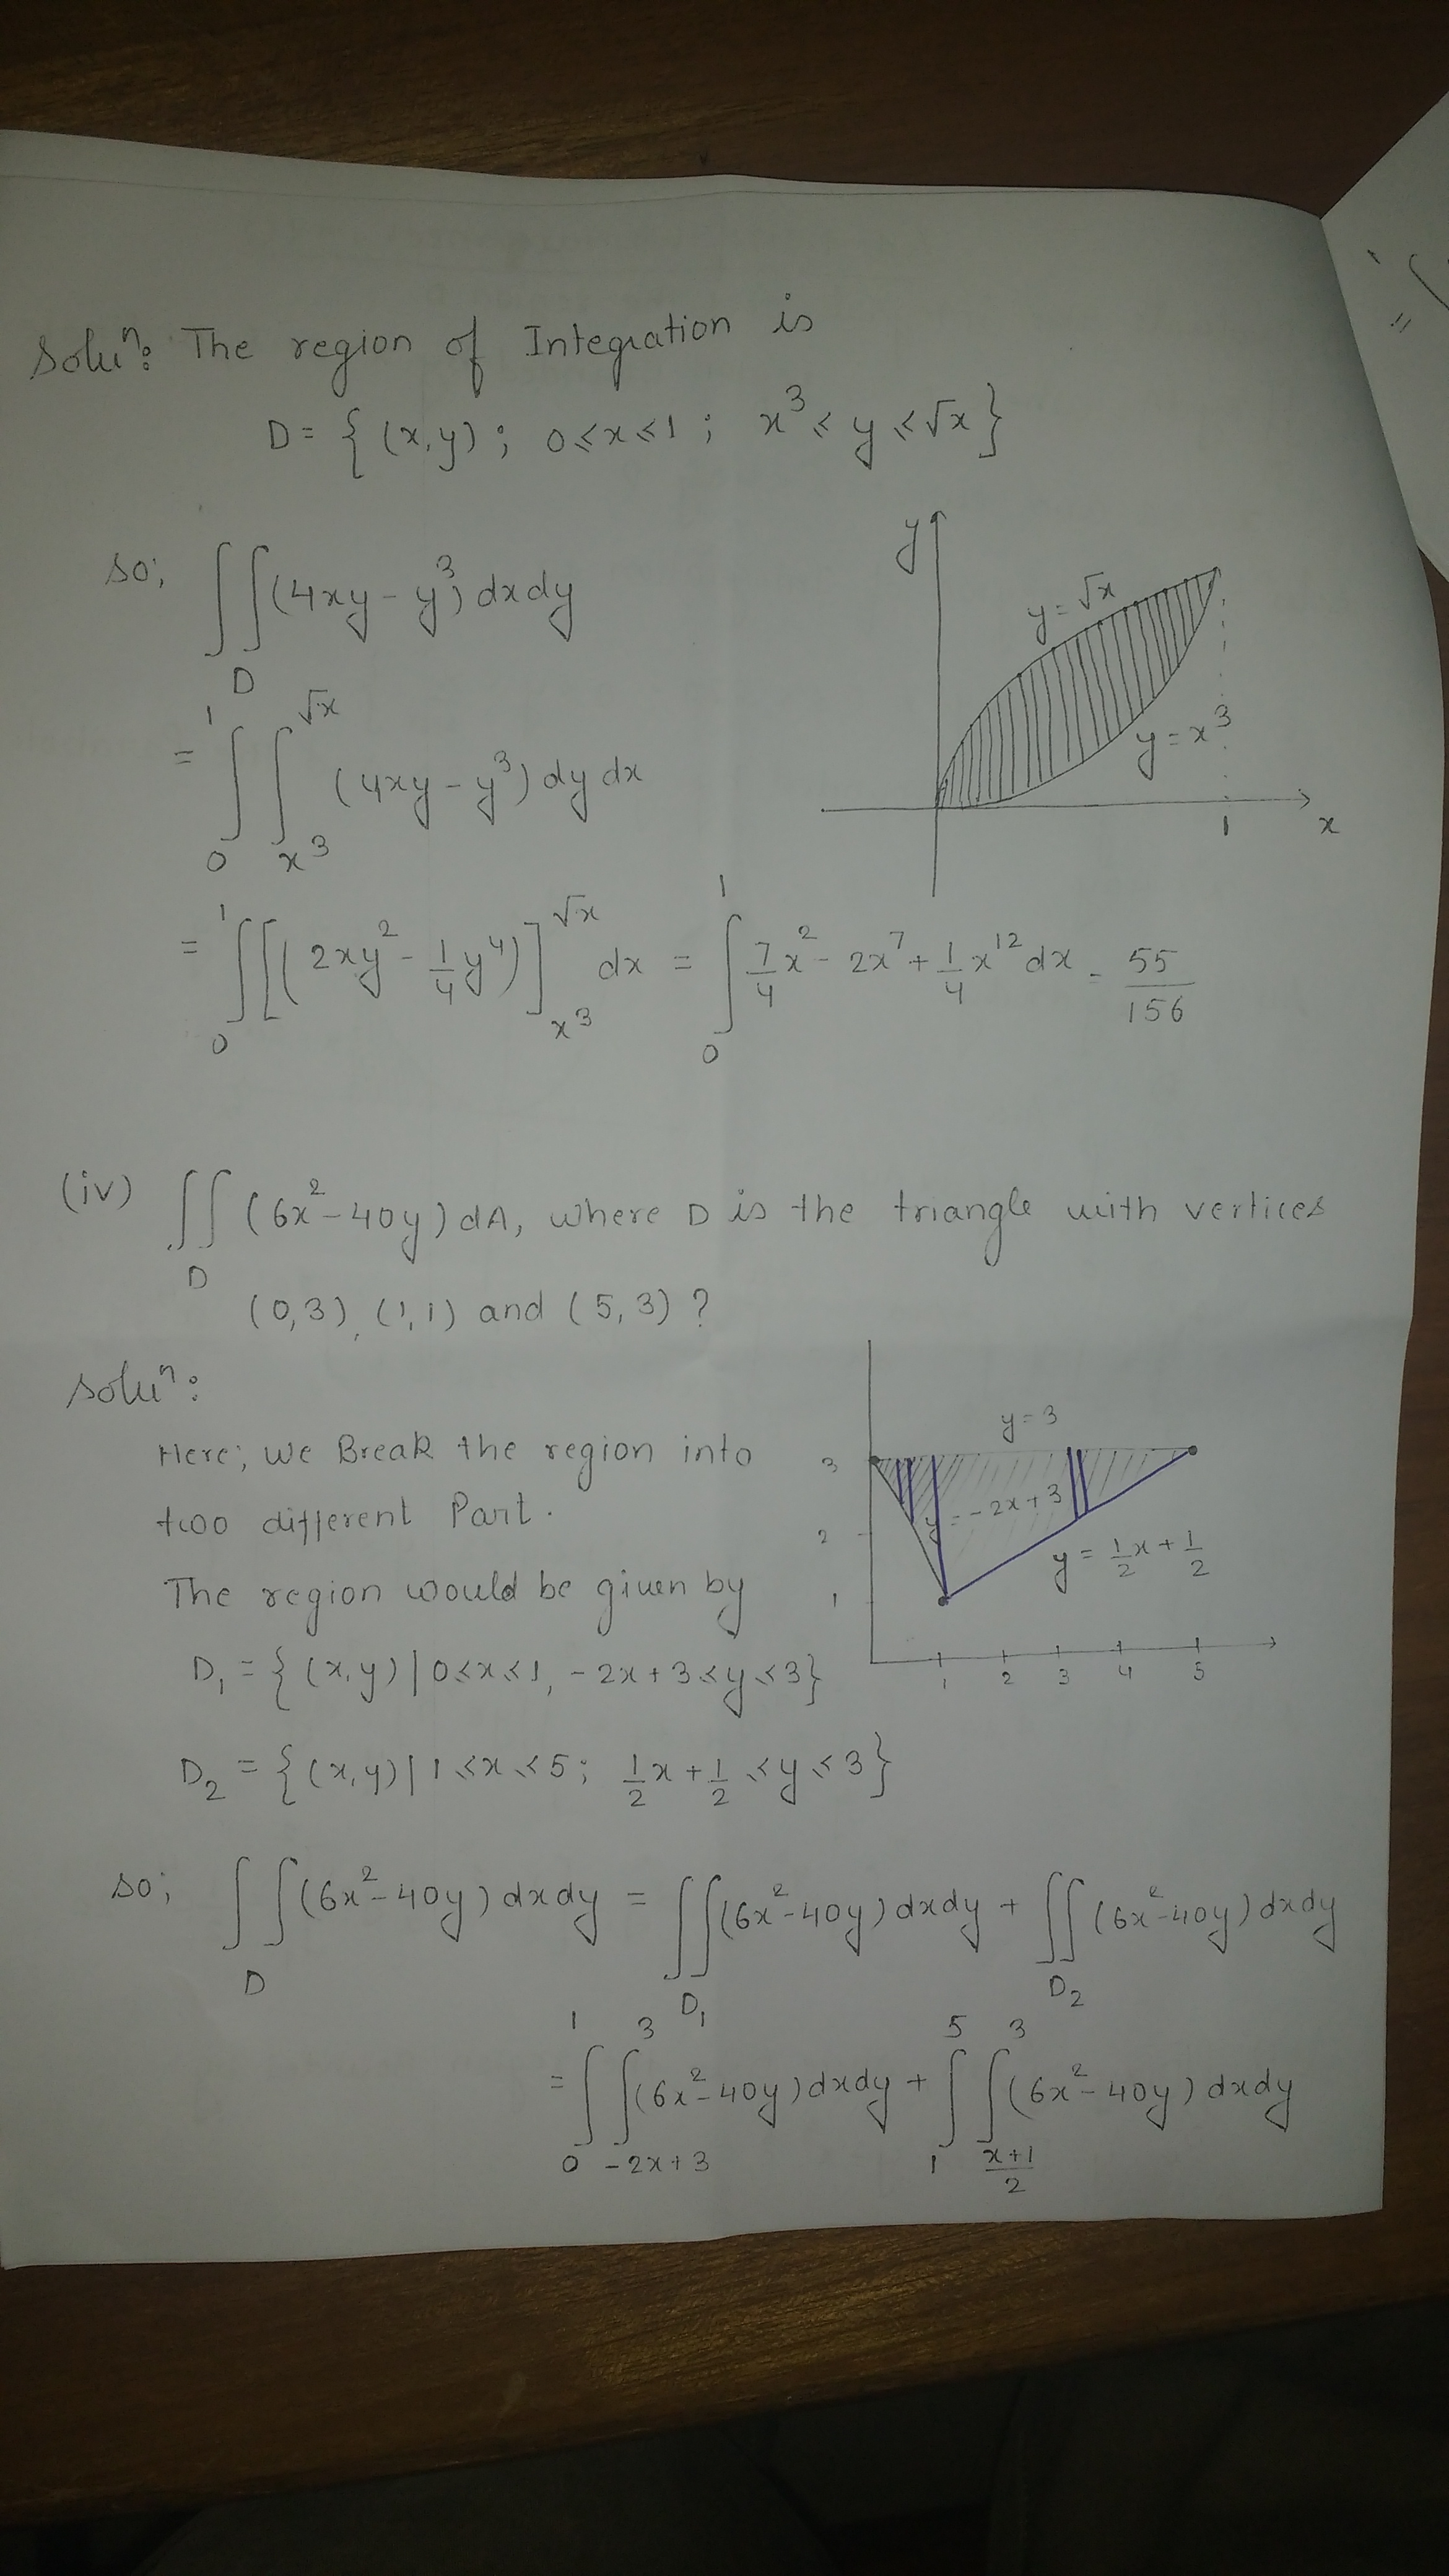 Soluⁿ: The region of Integration is
D = { (x,y) ; 0 ≤ x ≤ 1 ; x³ ≤ y ≤ √x }
so; ∬_D (4xy - y³) dxdy
= ∫₀¹ ∫_{x³}^{√x} (4xy - y³) dy dx
= ∫₀¹ [(2xy² - 1/4 y⁴)]_{x³}^{√x} dx = ∫₀¹ 7/4 x² - 2x⁷ + 1/4 x¹² dx = 55/156
y
y = √x
y = x³
1
x
(iv) ∬_D (6x² - 40y) dA, where D is the triangle with vertices
(0,3), (1,1) and (5,3) ?
Soluⁿ:
Here; we Break the region into
two different Part.
The region would be given by
D₁ = { (x,y) | 0 ≤ x ≤ 1, -2x + 3 ≤ y ≤ 3 }
D₂ = { (x,y) | 1 ≤ x ≤ 5 ; 1/2 x + 1/2 ≤ y ≤ 3 }
y = 3
3
y = -2x + 3
2
y = 1/2 x + 1/2
1
1 2 3 4 5
so; ∬_D (6x² - 40y) dxdy = ∬_{D₁} (6x² - 40y) dxdy + ∬_{D₂} (6x² - 40y) dxdy
= ∫₀¹ ∫_{-2x+3}^{3} (6x² - 40y) dxdy + ∫₁⁵ ∫_{(x+1)/2}^{3} (6x² - 40y) dxdy